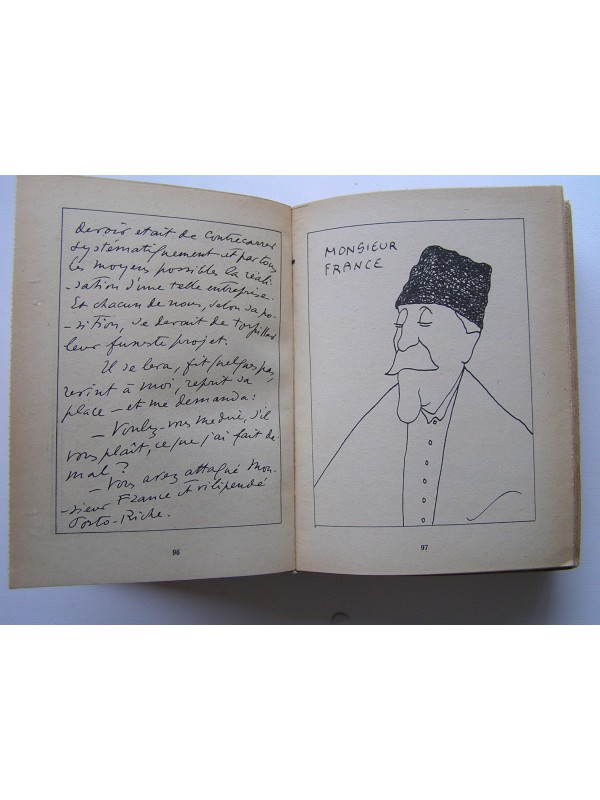 devoir était de contrecarrer
systématiquement et par tous
les moyens possibles la réali-
-sation d'une telle entreprise.
Et chacun de nous, selon sa po-
-sition, se devait de torpiller
leur funeste projet.
Il se leva, fit quelques pas,
revint à moi, reprit sa
place — et me demanda :
— Voulez-vous me dire, s'il
vous plaît, ce que j'ai fait de
mal ?
— Vous avez attaqué Mon-
-sieur France et vilipendé
Porto-Riche.
96
MONSIEUR
FRANCE
97